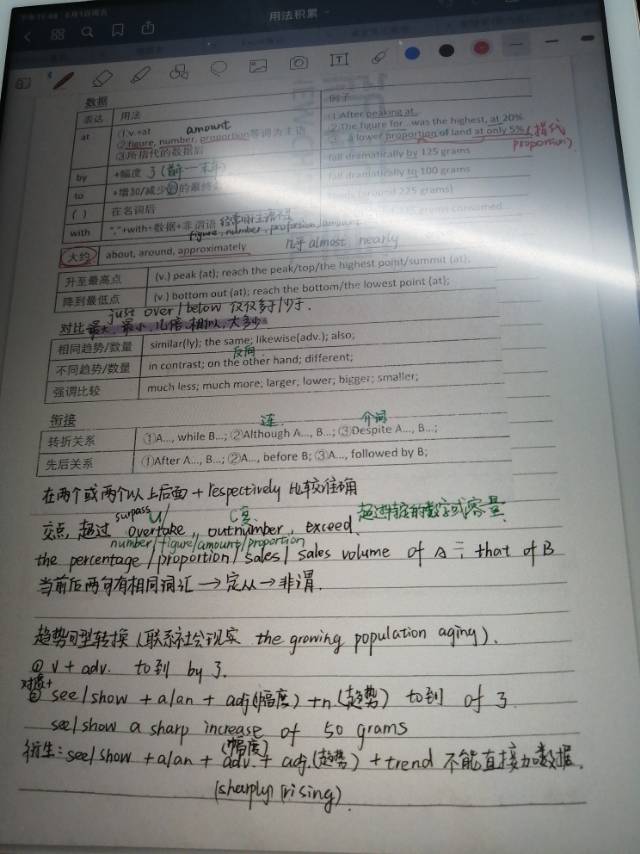 用法积累
数据
表达 用法 例子
at ①v.+at amount ①After peaking at…
②figure, number, proportion等词为主语 ②The figure for…was the highest, at 20%
③所指代的数据后 lower proportion of land at only 5% (指代proportion)
by +幅度 了 fall dramatically by 125 grams
to +增加/减少到的最终 fall dramatically to 100 grams
( ) 在名词后 (around 225 grams)
with "，"+with+数据+非谓语 grams consumed
figure, number, proportion, amount
大约 about, around, approximately 几乎 almost nearly
升至最高点 (v.) peak (at); reach the peak/top/the highest point/summit (at);
降到最低点 (v.) bottom out (at); reach the bottom/the lowest point (at);
just over/below 仅仅多于/少于.
对比 最大, 最小, 几倍, 相似, 大多少
相同趋势/数量 similar(ly); the same; likewise(adv.); also;
反向
不同趋势/数量 in contrast; on the other hand; different;
强调比较 much less; much more; larger; lower; bigger; smaller;
衔接
连 介词
转折关系 ①A…, while B…; ②Although A…, B…; ③Despite A…, B…;
先后关系 ①After A…, B…; ②A…, before B; ③A…, followed by B;
在两个或两个以上后面 + respectively 比较准确
surpass
交点, 超过 overtake, outnumber, exceed 超过特定的数字或容量
number/figure/amount/proportion
the percentage/proportion/sales/sales volume of A = that of B
当前后两句有相同词汇 → 定从 → 非谓.
趋势句型转换 (联系社会现实 the growing population aging).
① v + adv. to到 by了.
对象+
② see/show + a/an + adj(幅度) + n(趋势) to到 of了
see/show a sharp increase of 50 grams
(幅度)
衍生: see/show + a/an + adv. + adj.(趋势) + trend 不能直接加数据.
(sharply) (rising)